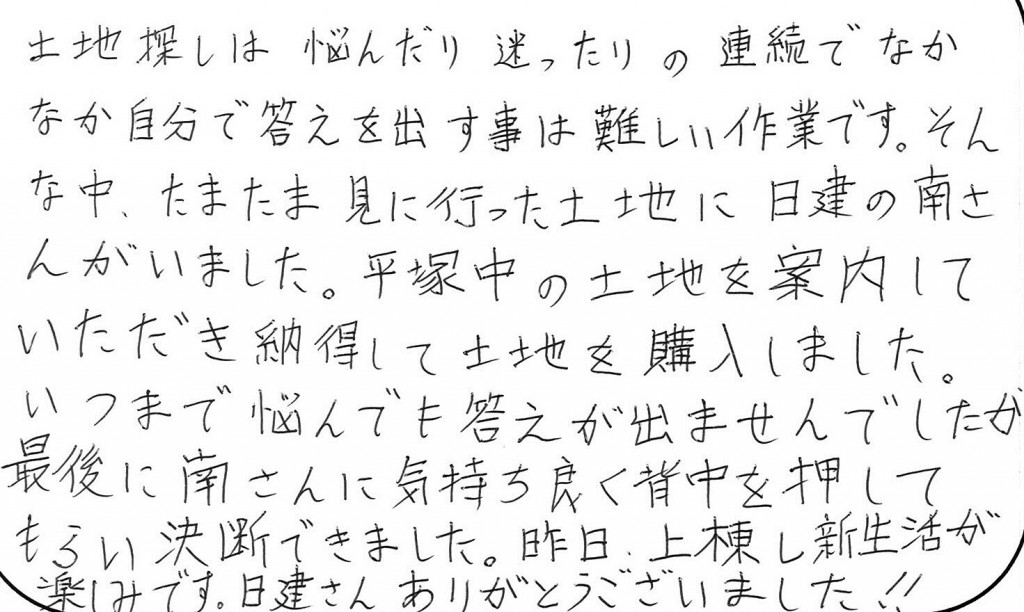 土地探しは 悩んだり 迷ったりの 連続でなか
なか自分で答えを出す事は難しい作業です。そん
な中、たまたま見に行った土地に 日建の南さ
んがいました。平塚中の土地を案内して
いただき納得して土地を購入しました。
いつまで悩んでも答えが出ませんでしたが
最後に南さんに気持ち良く背中を押して
もらい決断できました。昨日、上棟し新生活が
楽しみです。日建さん ありがとうございました!!